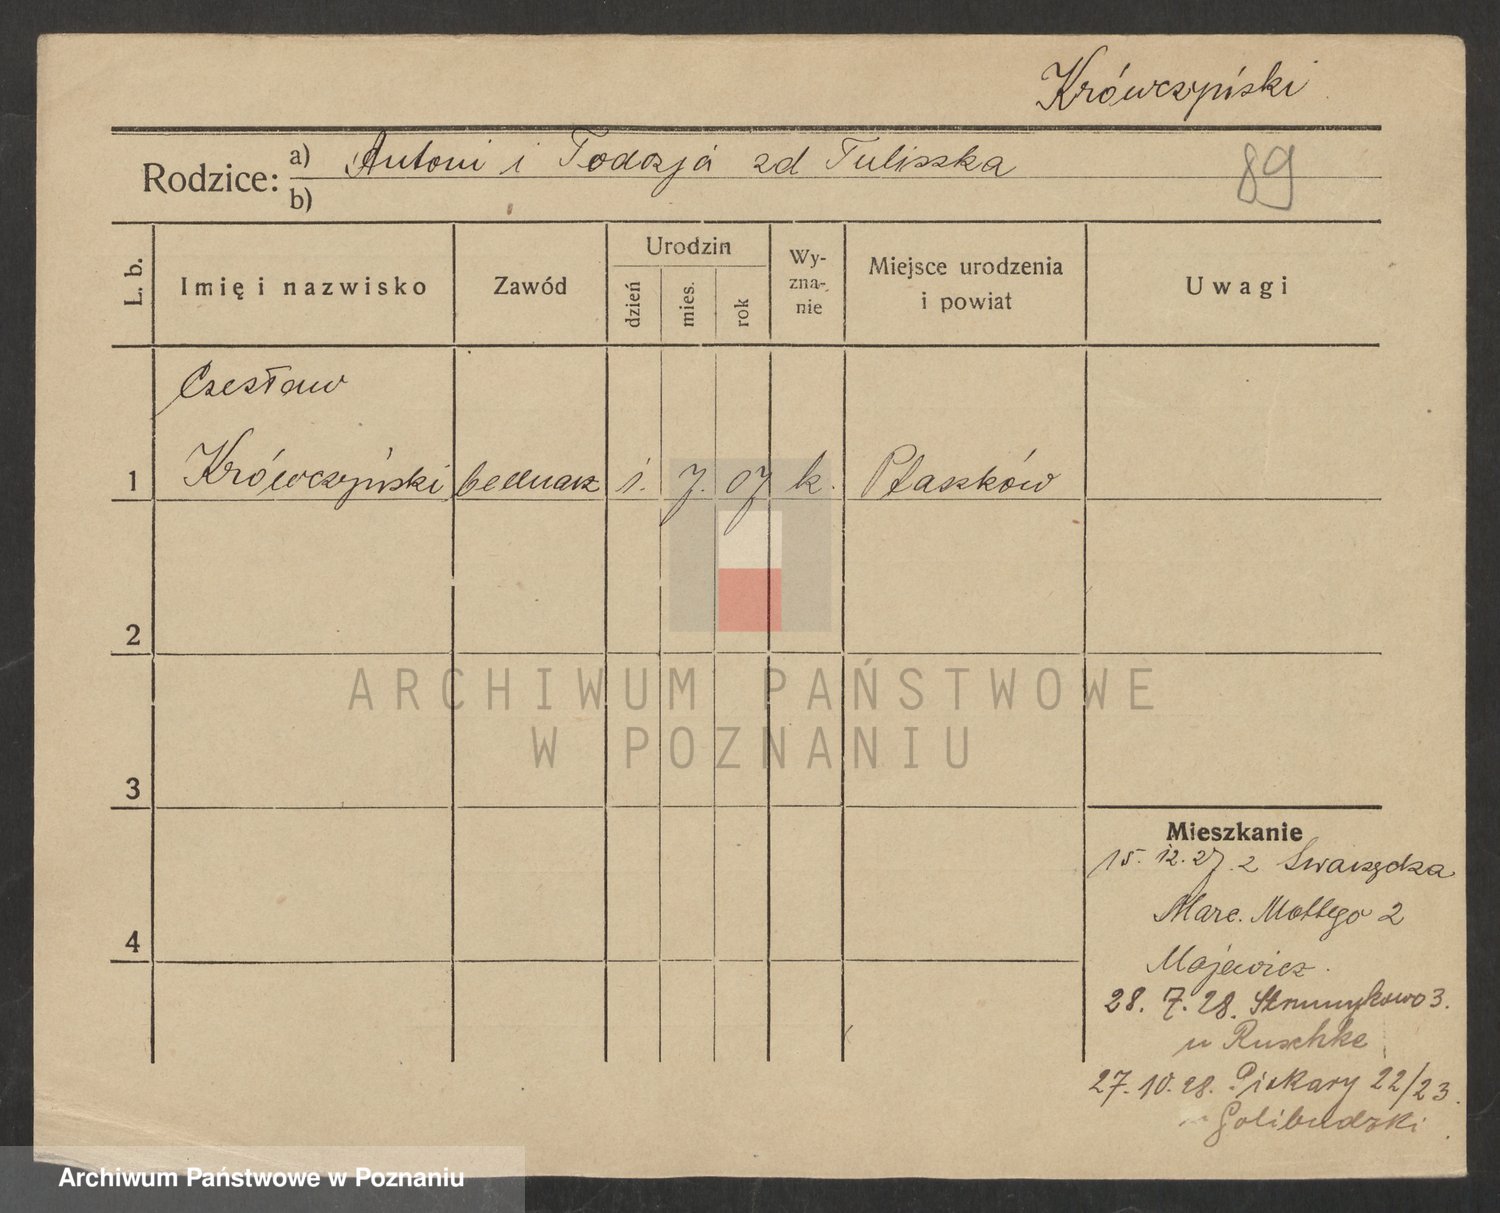 Krówczyński
Rodzice: a) Antoni i Todozja zd Tuliszka
b)
89
L. b.
Imię i nazwisko
Zawód
Urodzin
dzień
mies.
rok
Wy-
zna-
nie
Miejsce urodzenia
i powiat
Uwagi
Czesław
1 Krówczyński bednarz 1. 7. 07 k. Ptaszków
2
3
4
Mieszkanie
15. 12. 27. z Swarzędza
Marc. Mottego 2
Majewicz.
28. 7. 28. Strumykowa 3.
u Ruschke
27. 10. 28. Piekary 22/23.
ARCHIWUM PAŃSTWOWE
W POZNANIU
Archiwum Państwowe w Poznaniu